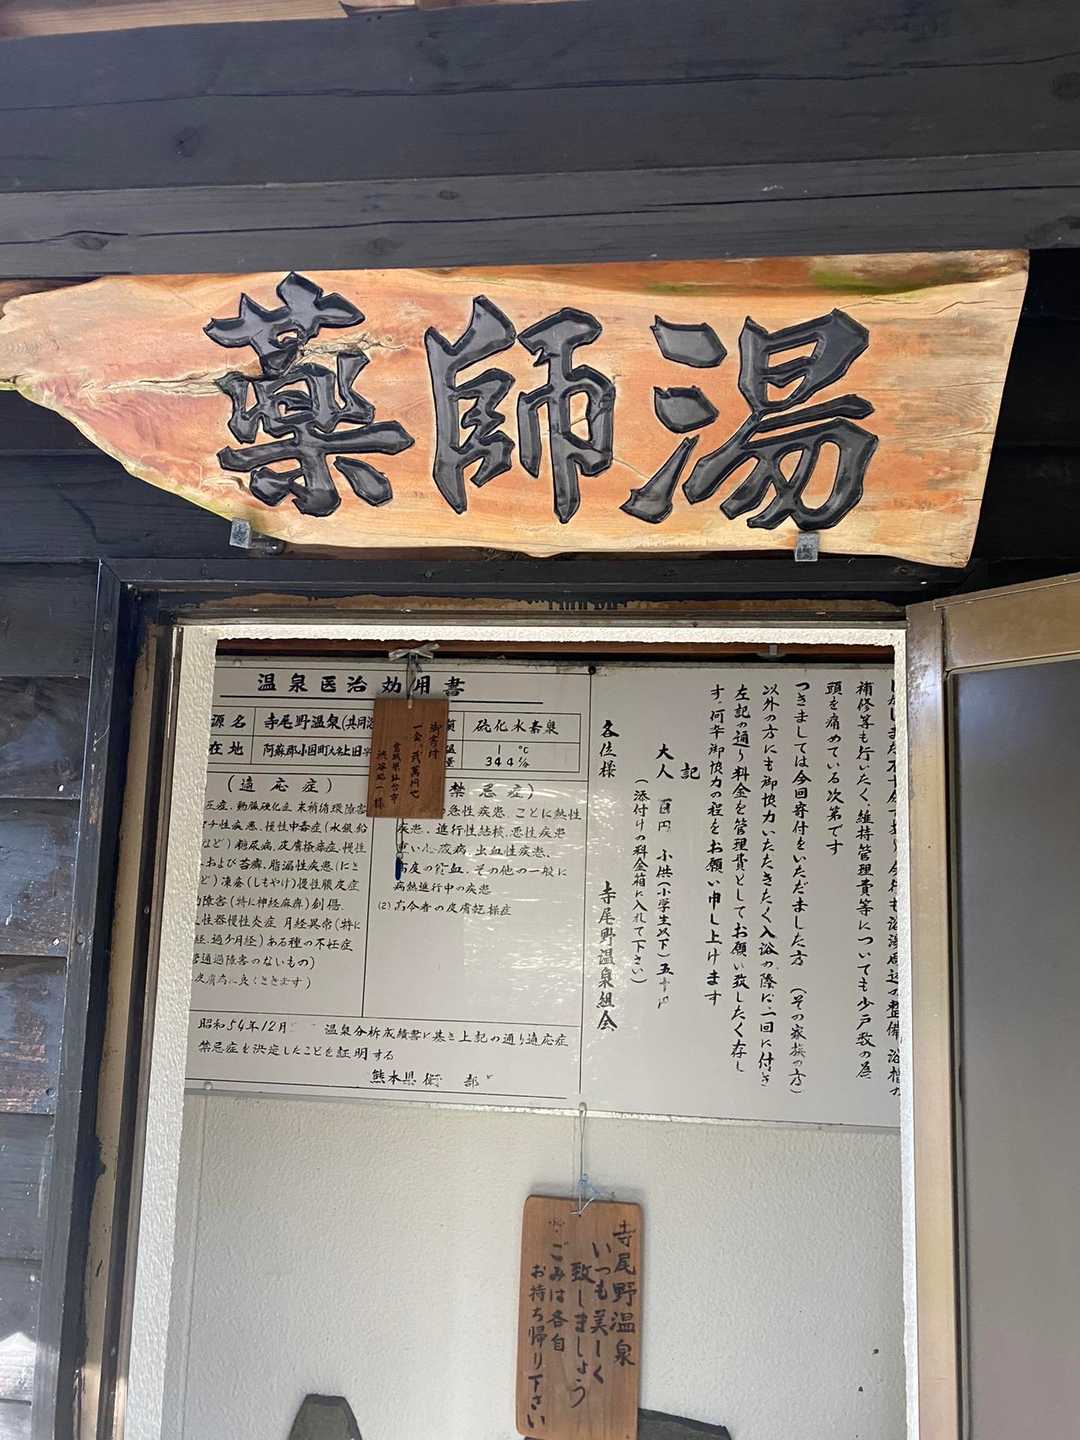 薬師湯
温泉医治効用書
源名 寺尾野温泉(共同浴
硫化水素泉
在地 阿蘇郡小国町大名上田字
1 ℃
344
(適応症)
圧症、動脈硬化症 末梢循環障害
マチ性疾患、慢性中毒症(水銀 鉛
など)糖尿病、皮膚掻痒症、慢性
および苔癬、脂漏性疾患(にき
ど)凍瘡(しもやけ)慢性膿皮症
障害(特に神経麻痺)創傷、
性器慢性炎症 月経異常(特に
経、過少月経)ある種の不妊症
管通過障害のないもの)
皮膚病に良くききます)
禁忌症)
の急性疾患、ことに熱性
疾患、進行性結核、悪性疾患
重い心臓病、出血性疾患、
高度の貧血、その他の一般に
病熱進行中の疾患
(2) 高令者の皮膚乾燥症
昭和54年12月 温泉分析成績書に基き上記の通り適応症
禁忌症を決定したことを証明する
熊本県衛 部
御寄付
一金、弐萬円也
宮城県仙台市
渋谷 一様
補修等も行いたく、維持管理費等についても少戸数の為
頭を痛めている次第です
つきましては今回寄付をいただました方 (その家族の方)
以外の方にも御協力いただきたく入浴の際に一回に付き
左記の通り料金を管理費としてお願い致したく存し
す。何卒御協力の程をお願い申し上けます
記
大人 百円 小供(小学生以下)五十円
(添付けの料金箱に入れて下さい)
各位様 寺尾野温泉組合
寺尾野温泉
いつも美しく
致しましょう
※ ごみは各自
お持ち帰り下さい